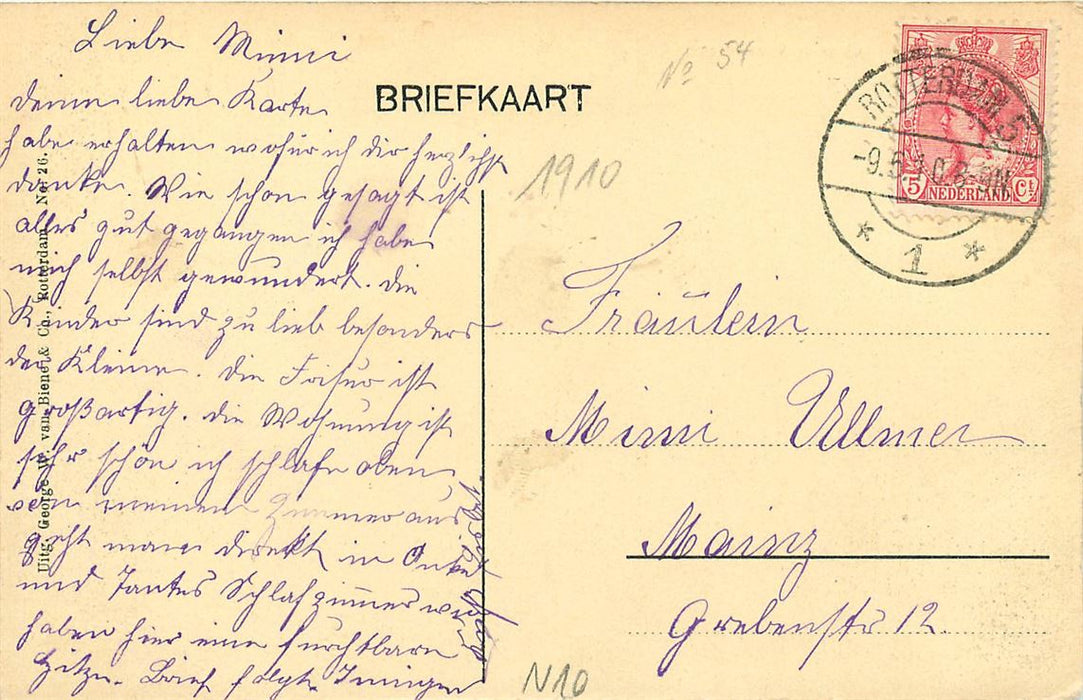 Liebe Mimi
deine liebe Karte
habe erhalten wofür ich dir herzlichst
danke. Wie schon gesagt ist
alles gut gegangen ich habe
mich selbst gewundert. Die
Kinder sind zu lieb besonders
der Kleine. Die Frisur ist
großartig. die Wohnung ist
sehr schön ich schlafe oben
von meinem Zimmer aus
geht man direkt in Onkel
und Tantes Schlafzimmer wir
haben hier eine furchtbare
Hitze. Brief folgt. Innigen
BRIEFKAART
Uitg. George W. van Biene & Co., Rotterdam. No. 26.
No 54
1910
ROTTERDAM 5
-9.6.10.8-9N
* 1 *
5 NEDERLAND Ct
Fräulein
Mimi Ullmer
Mainz
Grebenstr 12.
N10